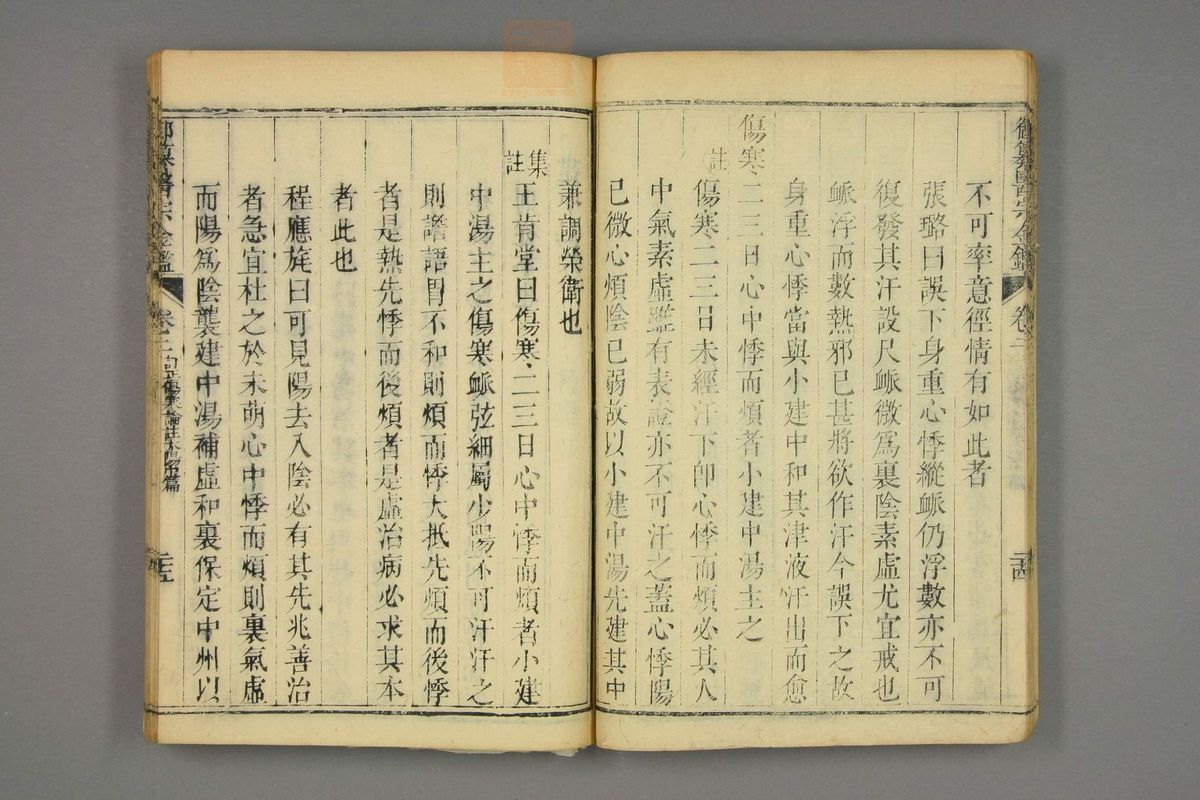 御纂醫宗金鑑 卷二 二十四
不可率意徑情有如此者
張璐曰誤下身重心悸縱脈仍浮數亦不可
復發其汗設尺脈微爲裏陰素虛尤宜戒也
脈浮而數熱邪已甚將欲作汗今誤下之故
身重心悸當與小建中和其津液汗出而愈
傷寒二三日心中悸而煩者小建中湯主之
註
傷寒二三日未經汗下卽心悸而煩必其人
中氣素虛雖有表證亦不可汗之蓋心悸陽
已微心煩陰已弱故以小建中湯先建其中
兼調榮衛也
集註
王肯堂曰傷寒二三日心中悸而煩者小建
中湯主之傷寒脈弦細屬少陽不可汗汗之
則譫語胃不和則煩而悸大抵先煩而後悸
者是熱先悸而後煩者是虛治病必求其本
者此也
程應旄曰可見陽去入陰必有其先兆善治
者急宜杜之於未萌心中悸而煩則裏氣虛
而陽爲陰襲建中湯補虛和裏保定中州以
御纂醫宗金鑑 卷二 訂正傷寒論註太陽中篇 二十五